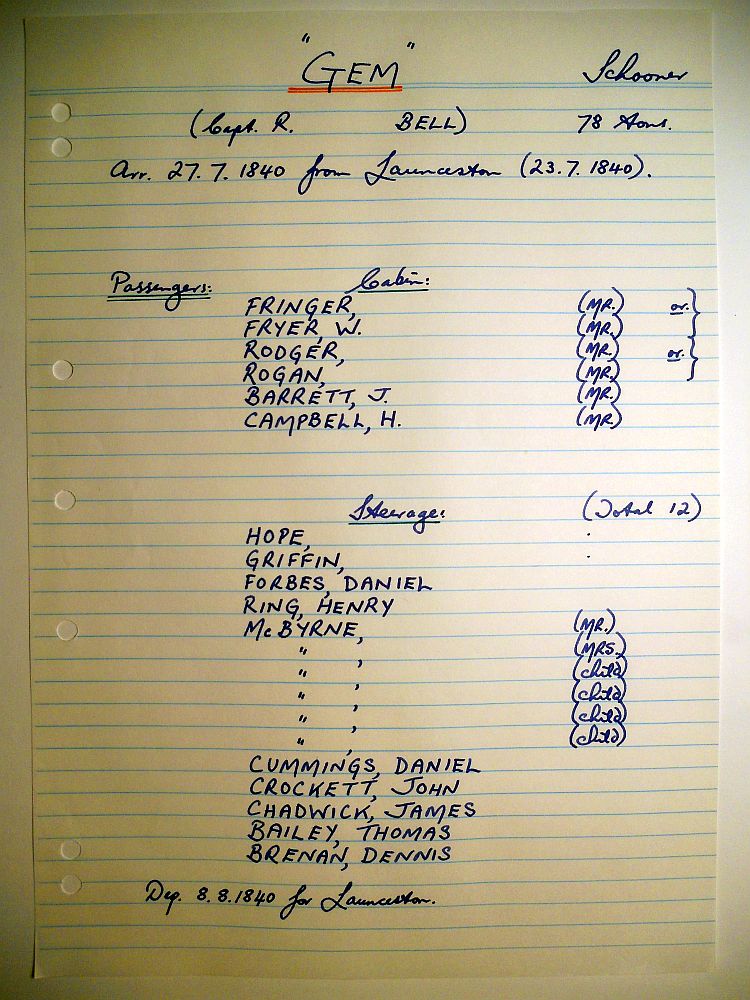 "GEM" Schooner
(Capt. R. BELL) 78 tons.
Arr. 27.7.1840 from Launceston (23.7.1840).
Passengers: Cabin:
FRINGER, (MR.) or.
FRYER, W. (MR.)
RODGER, (MR.) or.
ROGAN, (MR.)
BARRETT, J. (MR.)
CAMPBELL, H. (MR.)
Steerage: (Total 12)
HOPE, .
GRIFFIN, .
FORBES, DANIEL
RING, HENRY
McBYRNE, (MR.)
" , (MRS.)
" , (child)
" , (child)
" , (child)
" , (child)
CUMMINGS, DANIEL
CROCKETT, JOHN
CHADWICK, JAMES
BAILEY, THOMAS
BRENAN, DENNIS
Dep. 8.8.1840 for Launceston.